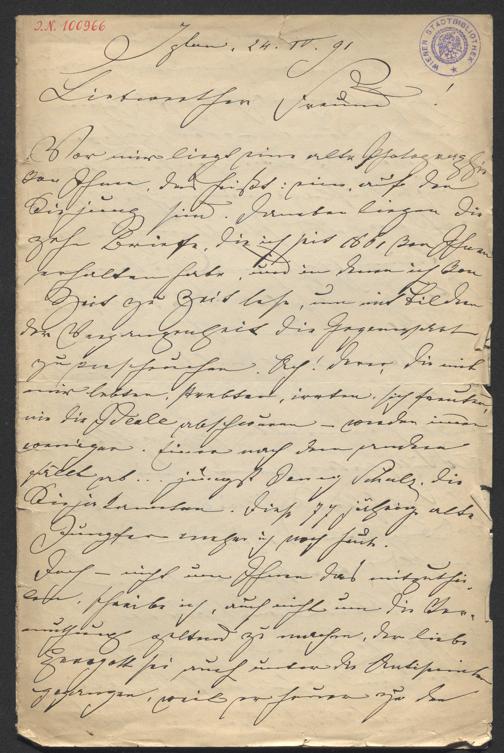 I.N. 100966
WIENER STADTBIBLIOTHEK
Iglau, 24. IV. 91
Liebwerther Freund!
Vor mir liegt eine alte Photographie
von Ihnen, das heißt: eine, auf der
Sie jung sind. Daneben liegen die
zehn Briefe, die ich seit 1861 von Ihnen
erhalten habe, und in denen ich von
Zeit zu Zeit lese, um mit Bildern
der Vergangenheit die Gegenwart
zu verscheuchen. Ach! derer, die mit
mir lebten, strebten, irrten, sich freuten,
nie die Ideale abschwuren – werden immer
weniger. Einer nach dem andern
fällt ab... jüngst Schulz, die
Diese 77 jährige alte
Jungfer ich noch heute.
Doch – nicht um Ihnen das mitzuthei-
len, schreibe ich, auch nicht um die Ver-
muthung geltend zu machen, der liebe
Herrgott sei auch unter die Antisemiten
gegangen, weil er heuer zu den